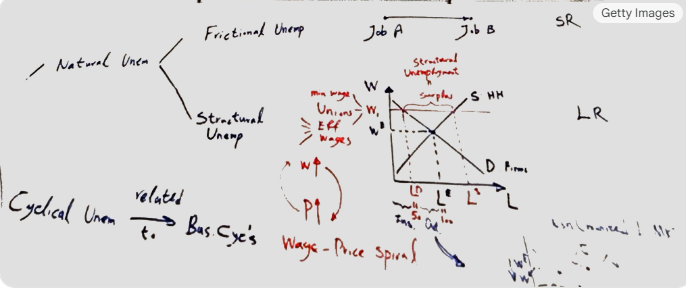 Getty Images
Natural Unem
Frictional Unemp
Job A
Job B
SR
Structural
Unemp
LR
min wage
Unions
Eff
Wages
Structural
Unemployment
Surplus
W
W₁
Wᴱ
S HH
D Firms
Lᴰ
Lᴱ
Lˢ
L
50
100
W↑
P↑
Wage-Price Spiral
Cyclical Unem
related
to
Bus. Cyc's